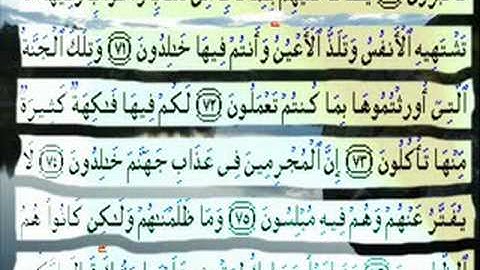 تَشْتَهِيهِ ٱلْأَنفُسُ وَتَلَذُّ ٱلْأَعْيُنُ وَأَنتُمْ فِيهَا خَٰلِدُونَ ٧١ وَتِلْكَ ٱلْجَنَّةُ
ٱلَّتِىٓ أُورِثْتُمُوهَا بِمَا كُنتُمْ تَعْمَلُونَ ٧٢ لَكُمْ فِيهَا فَٰكِهَةٌ كَثِيرَةٌ
مِّنْهَا تَأْكُلُونَ ٧٣ إِنَّ ٱلْمُجْرِمِينَ فِى عَذَابِ جَهَنَّمَ خَٰلِدُونَ ٧٤ لَا
يُفَتَّرُ عَنْهُمْ وَهُمْ فِيهِ مُبْلِسُونَ ٧٥ وَمَا ظَلَمْنَٰهُمْ وَلَٰكِن كَانُوا۟ هُمُ